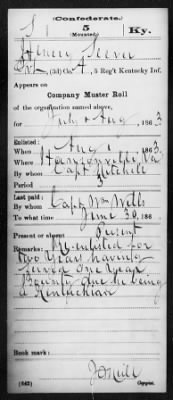 S (Confederate.)
5 Ky.
(Mounted.)
Pvt, (3d) Co. A, 5 Reg't Kentucky Inf.
Appears on
Company Muster Roll
of the organization named above,
for July & Aug, 1863
Enlisted:
When Aug 1, 1863
Where Hansonville, Va
By whom Capt
Period 3
Last paid:
By whom Capt Wm Wells
To what time June 30, 186
Present or absent Present
Remarks: Re-enlisted for
two Years having
served One Year
Bounty due he being
a Kentuckian
Book mark:
(642) Copyist.